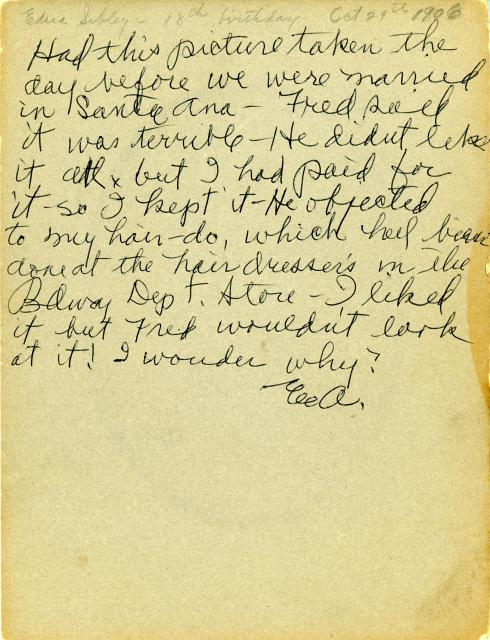 Edna Sibley - 18th birthday Oct 29th 1906
Had this picture taken the
day before we were married
in Santa Ana - Fred said
it was terrible - He didn't like
it at all, but I had paid for
it - so I kept it - He objected
to my hair-do, which had been
done at the hair dressers in the
Bdway Dep't. Store - I liked
it but Fred wouldn't look
at it! I wonder why?